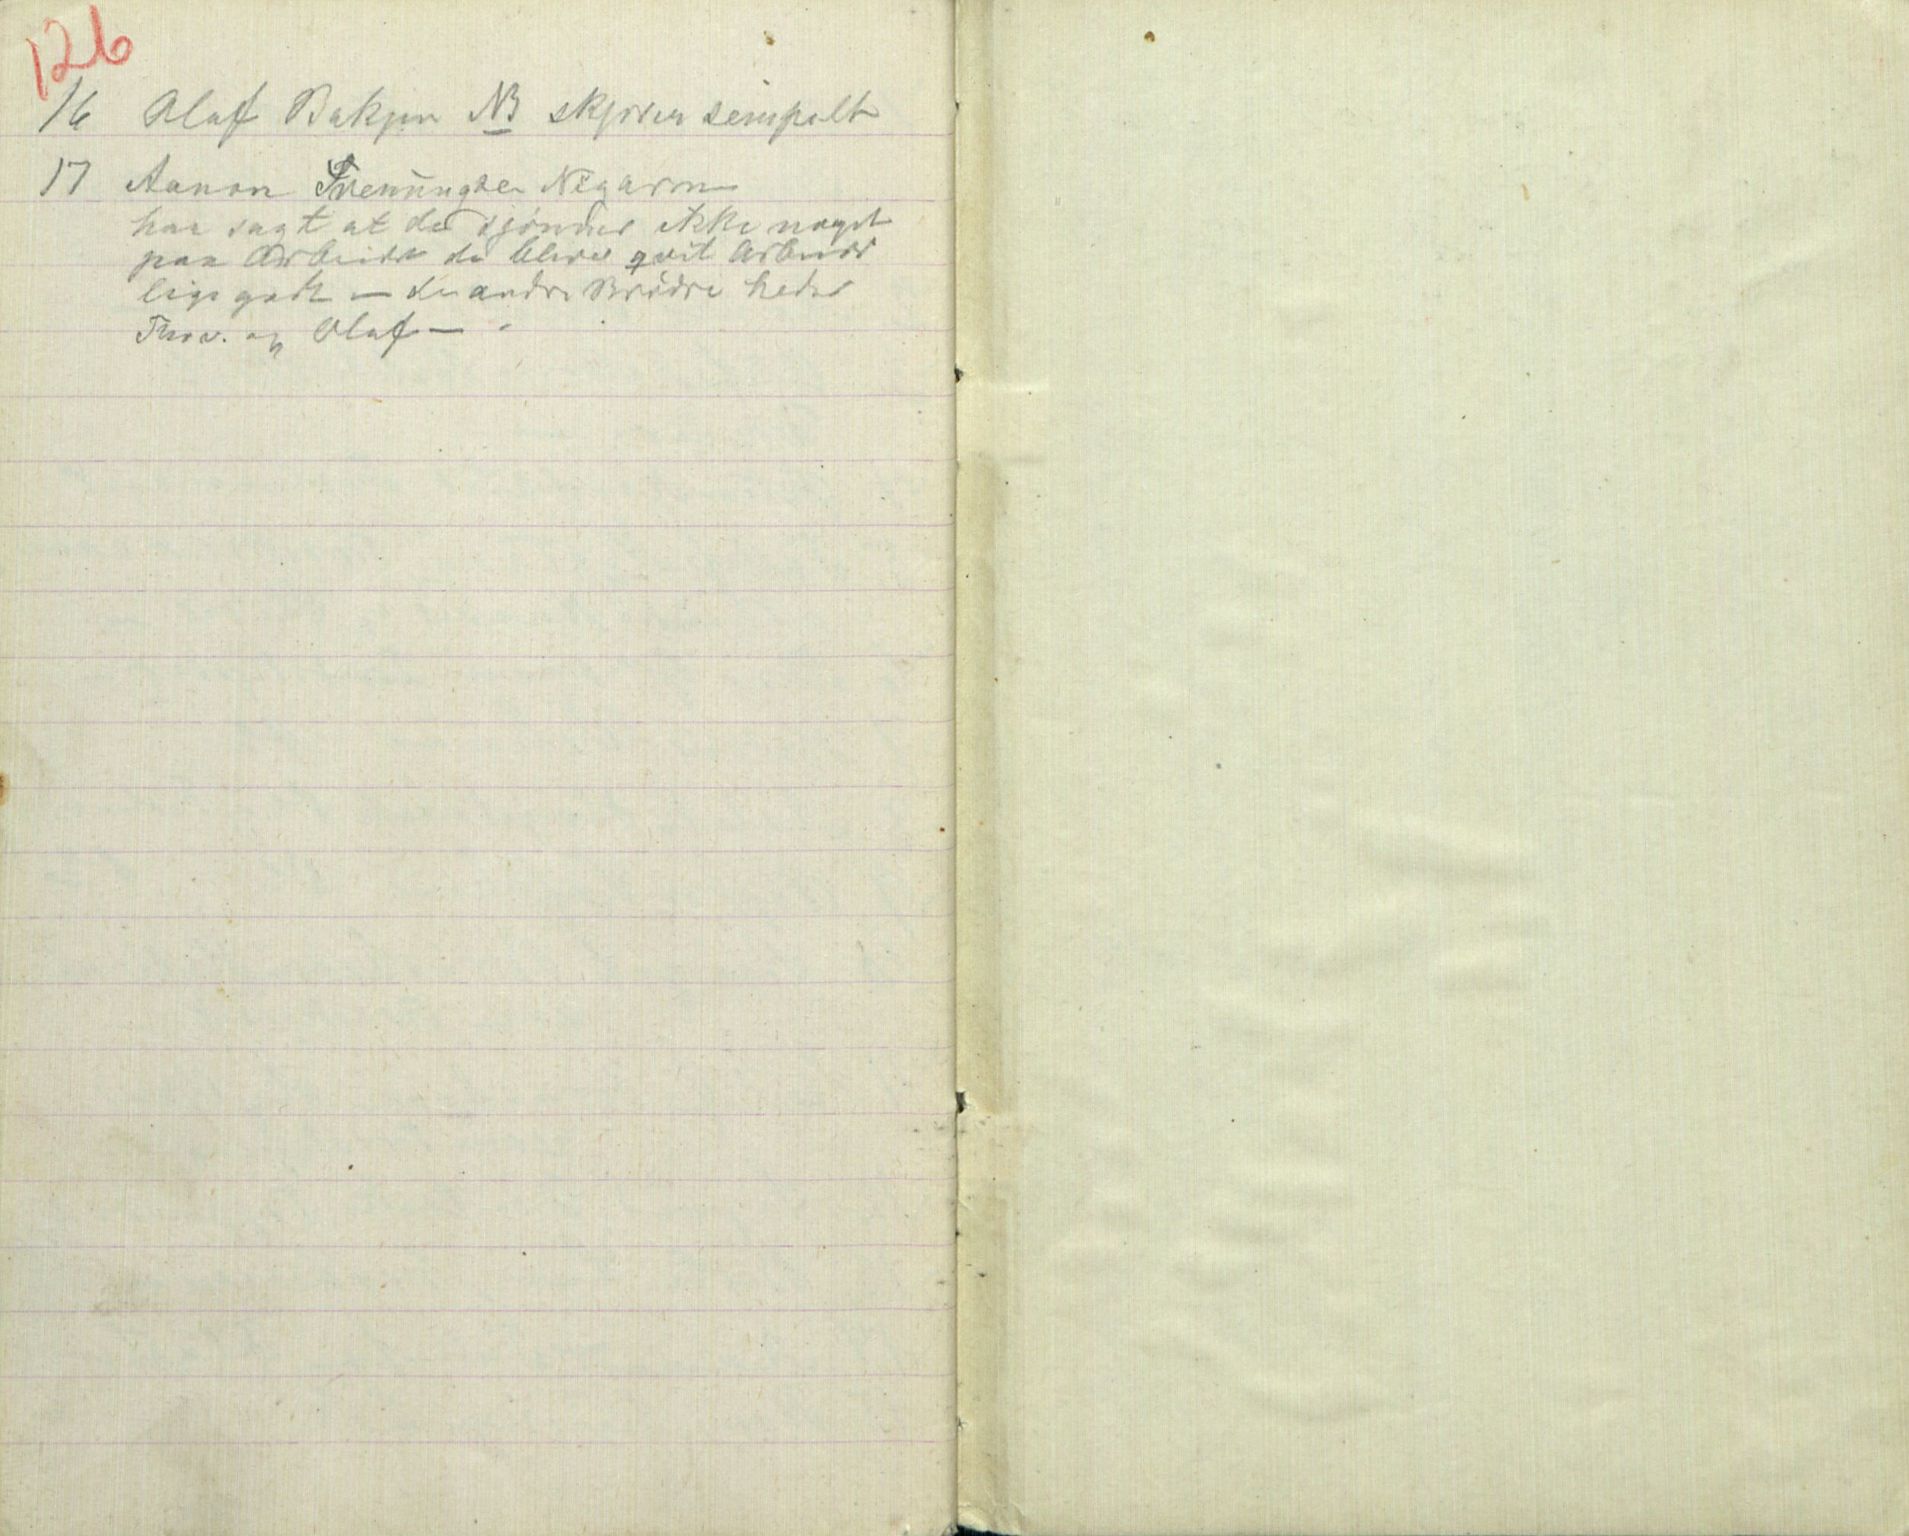 126
16 Olaf Bakjen NB skjöien sempelt
17 Aanon Treŭngden Nigaren
har sagt at de sjönder ikke noget
paa Arbeide de bliver qvit Arbeide
lige godt — de andre Brödre heder
Thov. og Olaf —